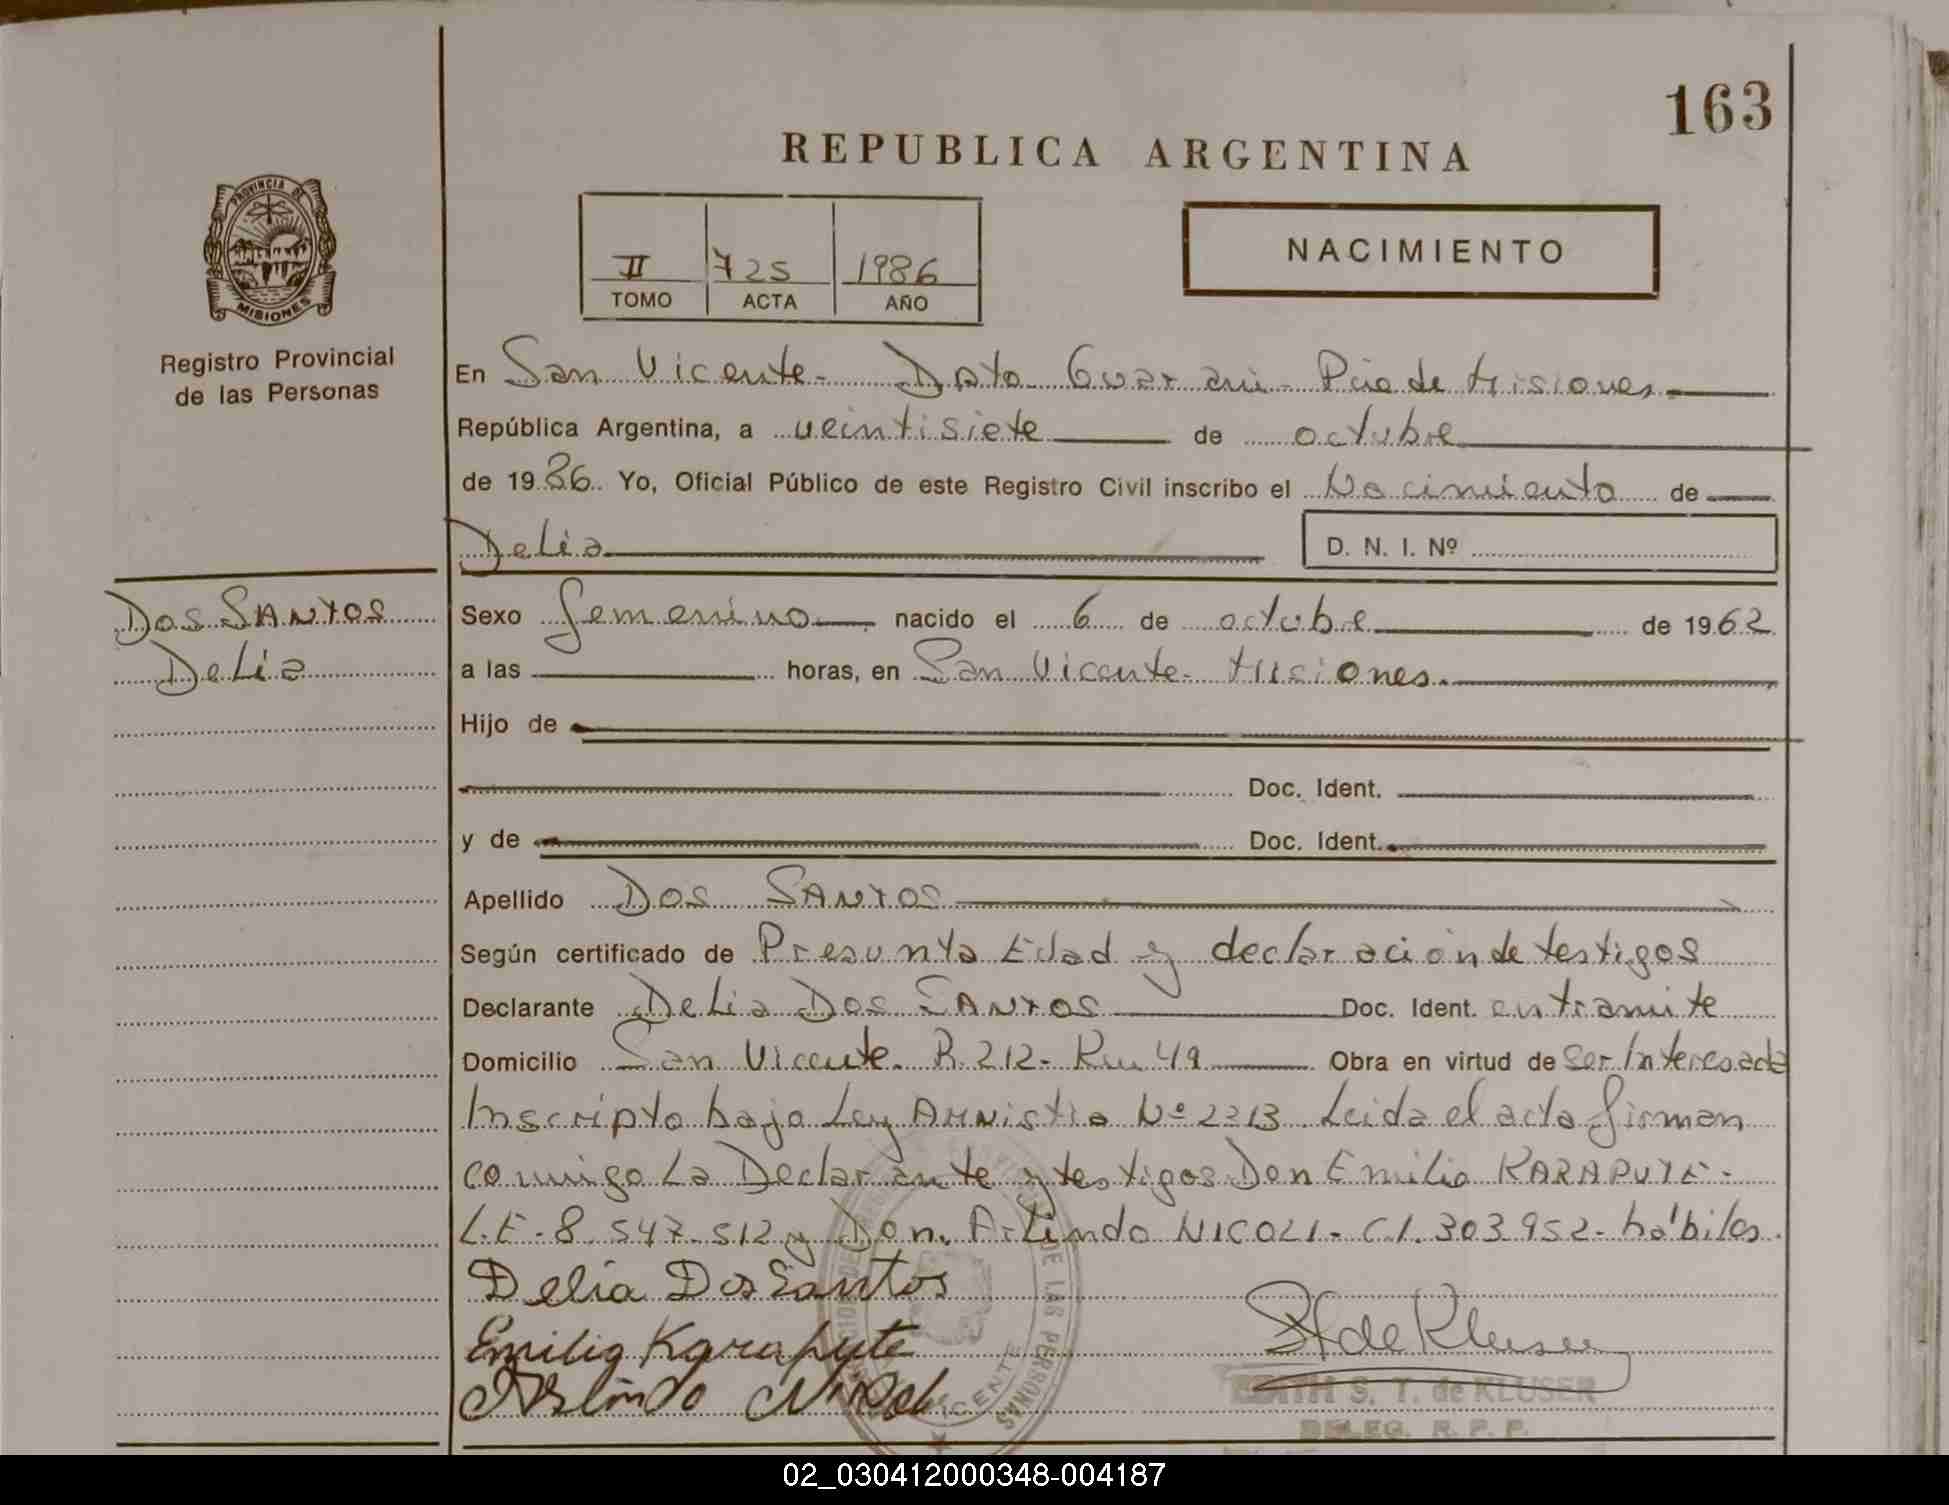 163
REPUBLICA ARGENTINA
PROVINCIA DE
MISIONES
Registro Provincial
de las Personas
II 725 1986
TOMO ACTA AÑO
NACIMIENTO
En San Vicente- Dpto Guarani- Pcia de Misiones
República Argentina, a veintisiete de octubre
de 1986. Yo, Oficial Público de este Registro Civil inscribo el Nacimiento de
Delia D. N. I. Nº
Dos SANTOS
Delia
Sexo femenino nacido el 6 de octubre de 1962
a las horas, en San Vicente- Misiones.
Hijo de
Doc. Ident.
y de Doc. Ident.
Apellido Dos SANTOS
Según certificado de Presunta Edad y declaración de testigos
Declarante Delia Dos SANTOS Doc. Ident. en tramite
Domicilio San Vicente. R. 212- Km 49 Obra en virtud de ser Interesada
Inscripto bajo Ley AMNistia Nº 2213 Leida el acta firman
conmigo La Declarante y testigos Don Emilio KARAPUTE-
L.E-8.547.512 y Don. Arlindo NICOLI- C.I. 303952- hábiles.
Delia Dos Santos
Emilio Karapyte
Arlindo Nicoli
DE LAS PERSONAS
VICENTE
S. T. de KLUSER
DELEG. R. P. P.
02_030412000348-004187